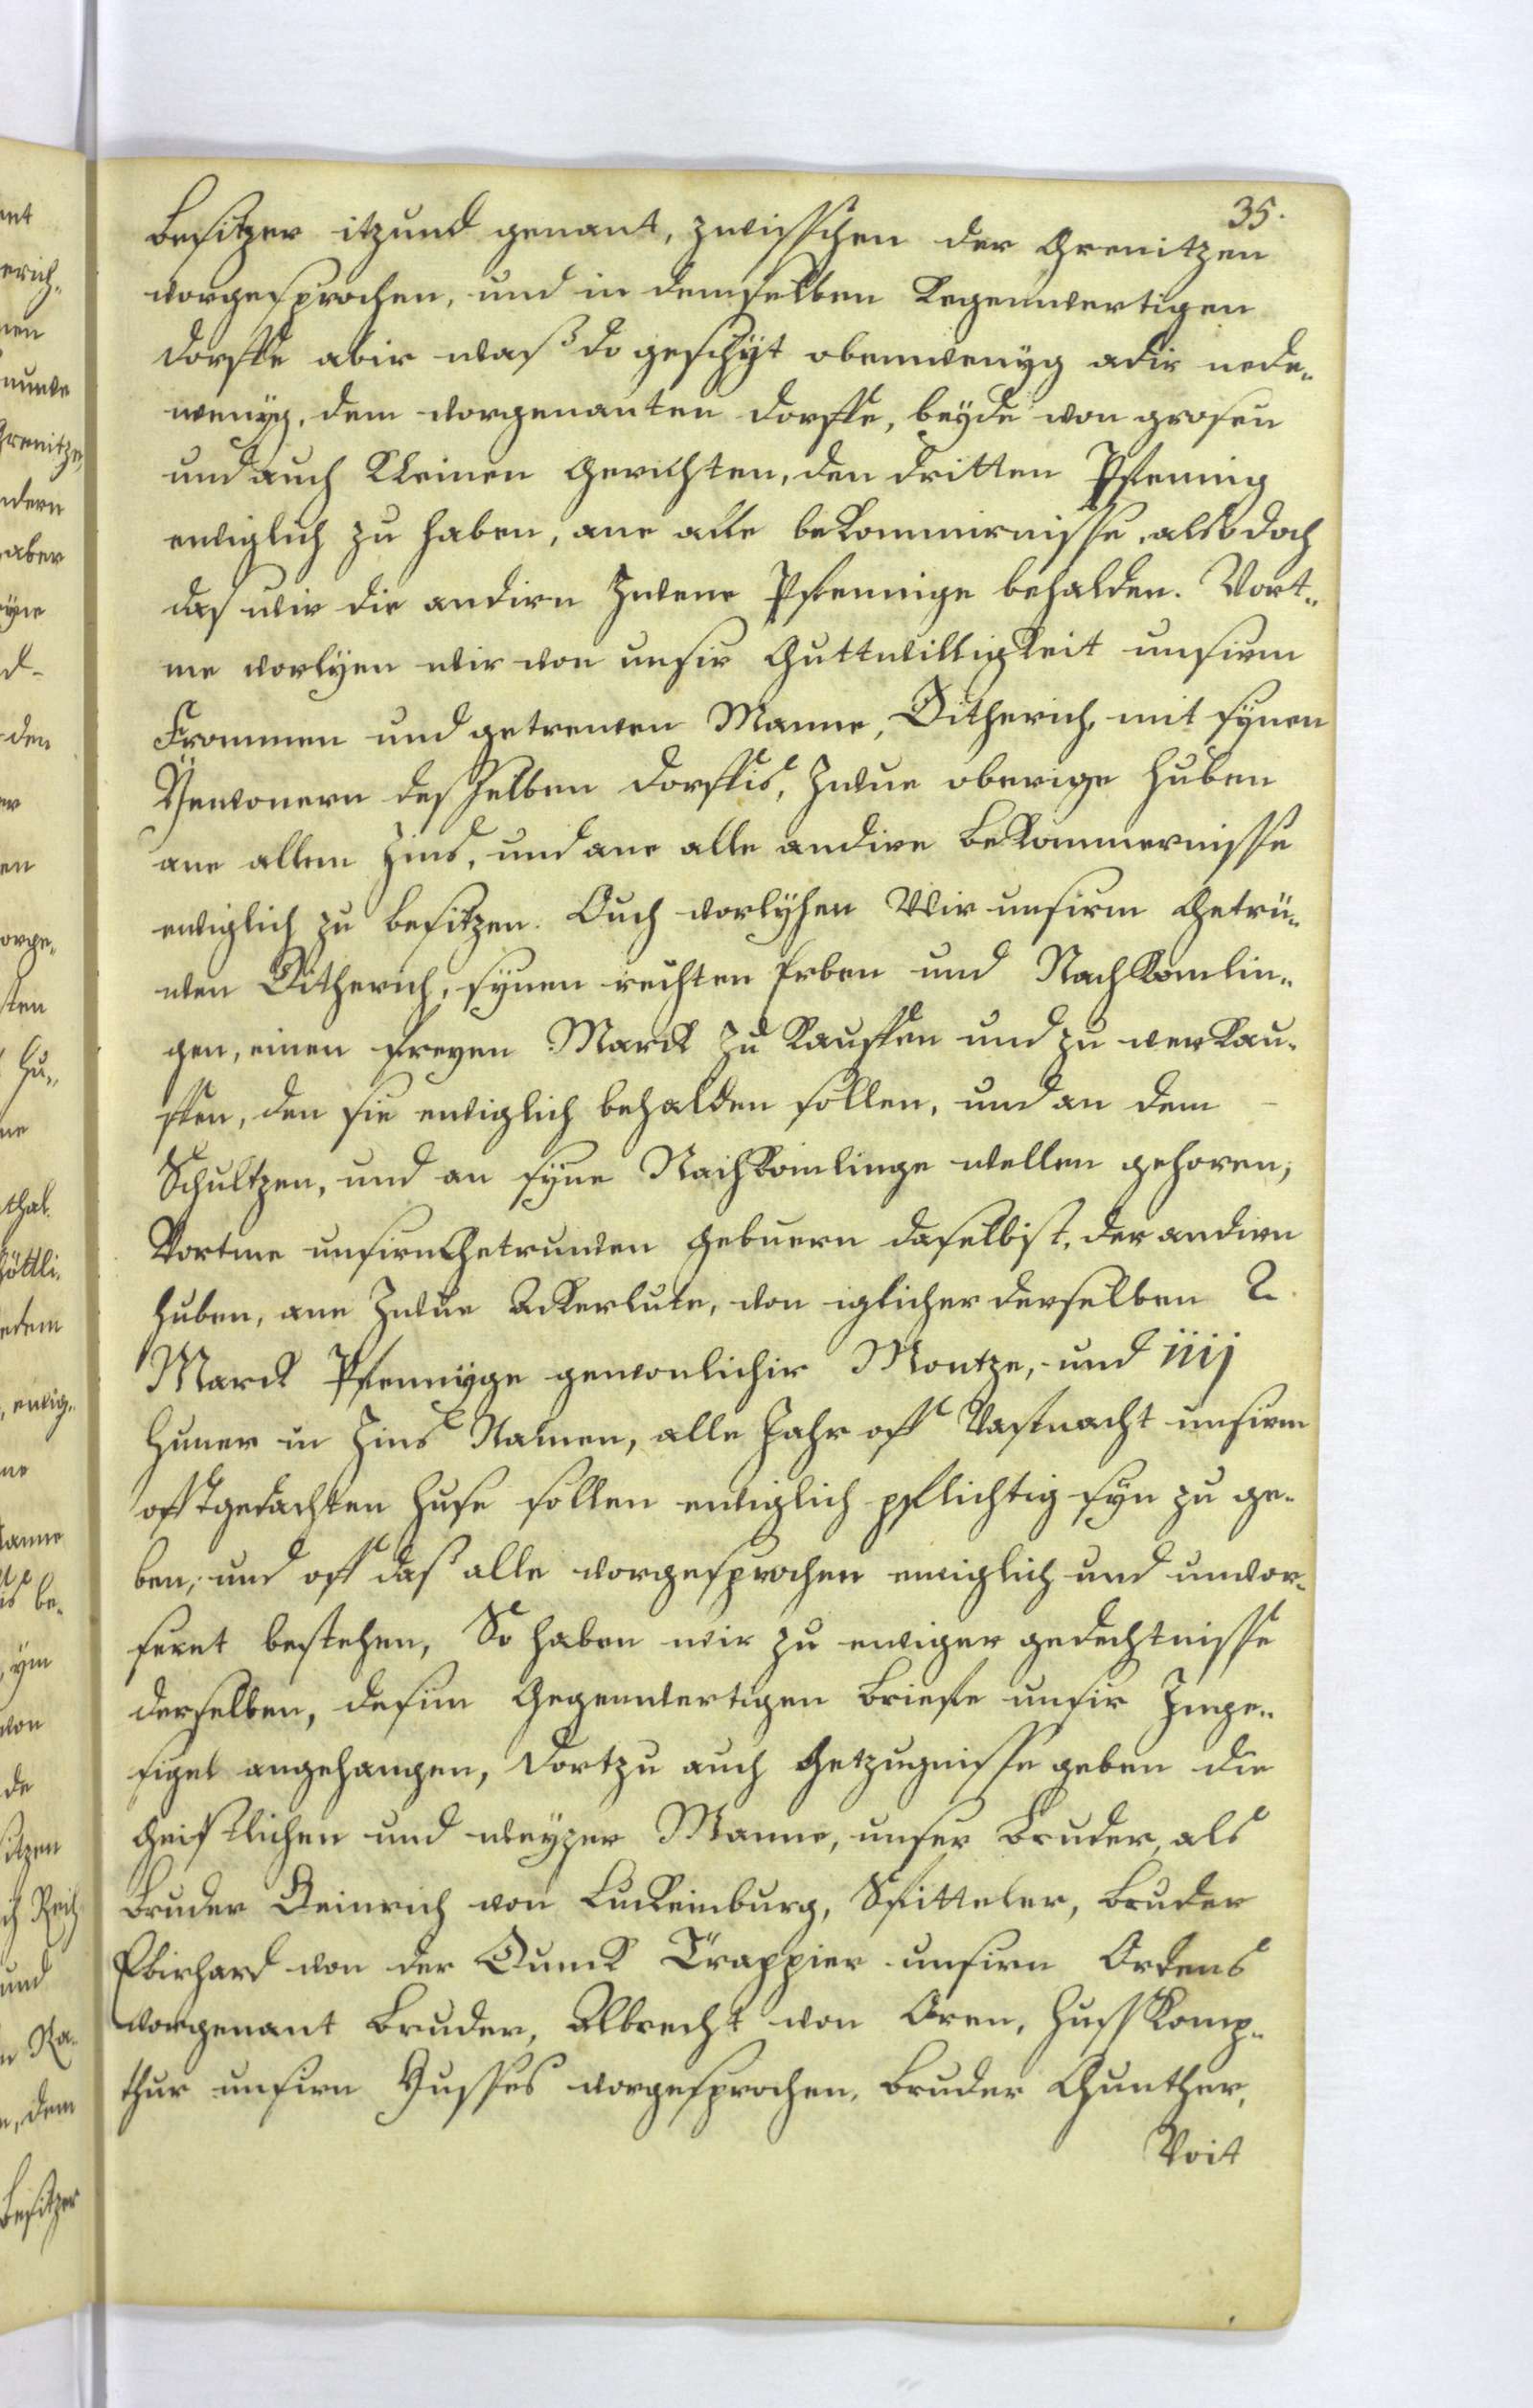 35.
Besitzer itzund genant, zwisschen der Grenitzen
vorgesprochen, und in demselben Kegenwertigen
dorffe abir waß do geschyt obenwenÿg adir nede„
wenÿg, dem vorgenanten dorffe, beÿde von grosen
und auch Kleinen Gerichten, den dritten Pfenning
ewiglich zu haben, ane alle beKommirnisse, also doch
das wir die andirn Zwene Pfennige behalden. Vort„
me vorlyen wir von unsir GuttwilligKeit unsirm
Frommen und getrewen Manne, Ditherich, mit sÿnen
Ÿnwonern desselben dorffis, Zwue oberige huben
ane allem Zins, und ane alle andire BeKommernisse
ewiglich zu besitzen. Ouch vorlÿhen Wir unsirm Getrü„
wen Ditherich, sÿnen rechten Erben und NachKomlin„
gen, einen freyen Marck zu Kauffen und zu verKau„
ffen, den sie ewiglich behalden sollen, und an dem
Schultzen, und an sÿne NachKomlinge wellen gehoren,
Vortme unsirn Getruwen gebuern daselbist, der andirn
huben, ane Zwue AcKerlute, von iglicher derselben 2.
Marck Pfennÿge gewonlichir Montze, und iiij
huner in Zins Namen, alle Jahr off Vastnacht unsirm
offtgedachten huse sollen ewiglich pflichtig sÿn zu ge„
ben, und off daß alle vorgesprochen ewiglich und unvor„
seret bestehen, So haben wir zu ewiger gedechtnisse
derselben, desim Gegenwertigen Briefe unsir Inge„
sigel angehangen, dortzu auch Getzugnisse geben die
Geistlichen und weÿzer Manne, unser Bruder, als
Bruder Heinrich von LucKeinburg, Spitteler, Bruder
Ebirhard von der Dunck Trappier unsirn Ordens
vorgenant Bruder, Albrecht von Oren, HussKomp„
thur unsirn Husses vorgesprochen, Bruder Gunther,
Voit